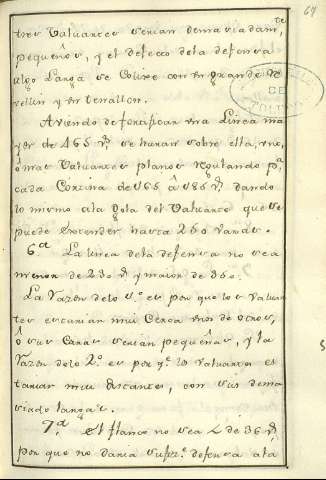 67
tros Valuartes serian demaciadam.te
pequeños, y el defecto dela defensa
algo larga se Cubre con un grande Re
vellin y un tenallon.
Aviendo de fortificar una Linea ma
yor de 465 v.s se haran sobre ella, uno,
ô mas Valuartes planos Regulando p.a
cada Cortina de 165 â 185 v.s dando
lo mismo ala Gola del Valuarte que se
puede extender hasta 260 varas.
6.a La linea dela defensa no sea
menor de 230 v.s y maior de 360.
La Razon delo 1.o es por que los Valuar
tes estarian mui Cerca unos de otros,
ô sus Caras serian pequeñas, y la
Razon delo 2.o es por q.e los valuartes es
tarian mui distantes, con sus dema
ciado largas.
7.a El flanco no sea de 36 v.s
por que no daria sufiz.te defensa ala